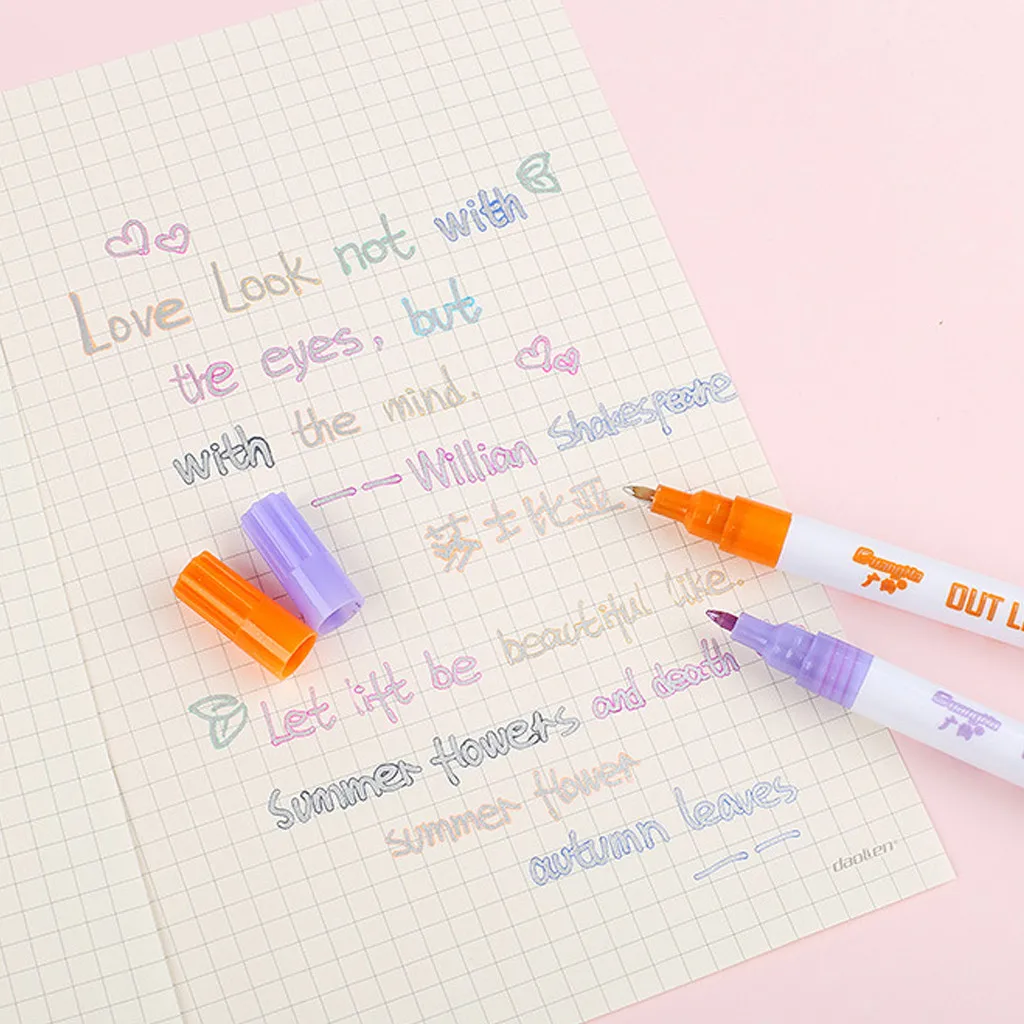 Love Look not with
the eyes, but
with the mind.
Willian Shakespeare
莎士比亚
beautiful like.
Let lift be
and death
Summer flowers
summer flower
autumn leaves
daolien
OUT L